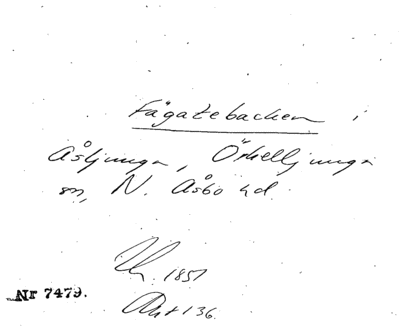 Fågatebacken i
Åsljunga, Örkelljunga
sn, N. Åsbo hd.
1851
Nr 7479.
136.